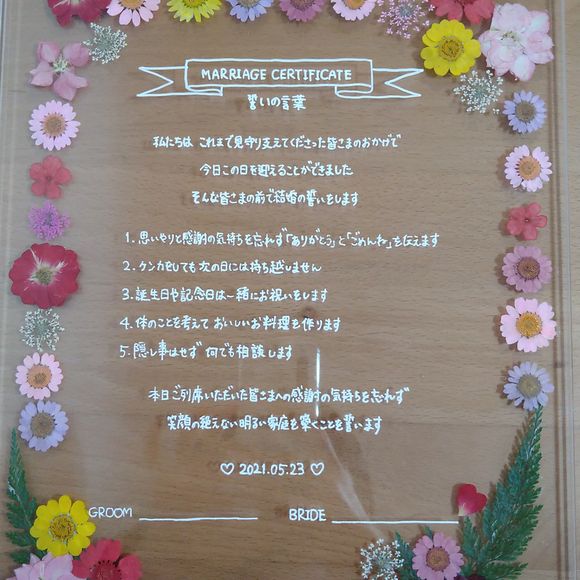 MARRIAGE CERTIFICATE
誓いの言葉
私たちは これまで見守り支えてくださった皆さまのおかげで
今日この日を迎えることができました
そんな皆さまの前で結婚の誓いをします
1. 思いやりと感謝の気持ちを忘れず「ありがとう」と「ごめんね」を伝えます
2. ケンカをしても次の日には持ち越しません
3. 誕生日や記念日は一緒にお祝いをします
4. 体のことを考えて おいしいお料理を作ります
5. 隠し事はせず 何でも相談します
本日ご列席いただいた皆さまへの感謝の気持ちを忘れず
笑顔の絶えない明るい家庭を築くことを誓います
♡ 2021.05.23 ♡
GROOM
BRIDE